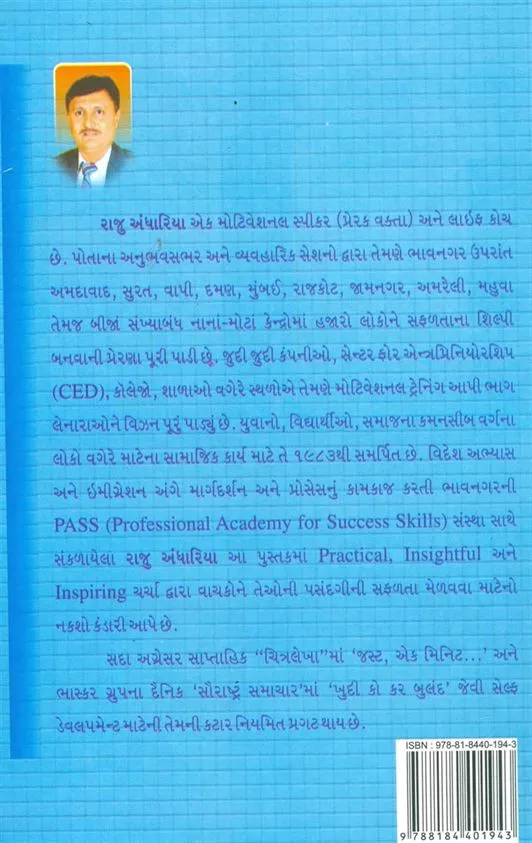 રાજુ અંધારિયા એક મોટિવેશનલ સ્પીકર (પ્રેરક વક્તા) અને લાઇફ કોચ
છે. પોતાના અનુભવસભર અને વ્યવહારિક સેશનો દ્વારા તેમણે ભાવનગર ઉપરાંત
અમદાવાદ, સુરત, વાપી, દમણ, મુંબઈ, રાજકોટ, જામનગર, અમરેલી, મહુવા
તેમજ બીજાં સંખ્યાબંધ નાનાં-મોટાં કેન્દ્રોમાં હજારો લોકોને સફળતાના શિલ્પી
બનવાની પ્રેરણા પૂરી પાડી છે. જુદી જુદી કંપનીઓ, સેન્ટર ફોર એન્ત્રપ્રિનિયોરશિપ
(CED), કોલેજો, શાળાઓ વગેરે સ્થળોએ તેમણે મોટિવેશનલ ટ્રેનિંગ આપી ભાગ
લેનારાઓને વિઝન પૂરું પાડ્યું છે. યુવાનો, વિદ્યાર્થીઓ, સમાજના કમનસીબ વર્ગના
લોકો વગેરે માટેના સામાજિક કાર્ય માટે તે ૧૯૮૩થી સમર્પિત છે. વિદેશ અભ્યાસ
અને ઇમીગ્રેશન અંગે માર્ગદર્શન અને પ્રોસેસનું કામકાજ કરતી ભાવનગરની
PASS (Professional Academy for Success Skills) સંસ્થા સાથે
સંકળાયેલા રાજુ અંધારિયા આ પુસ્તકમાં Practical, Insightful અને
Inspiring ચર્ચા દ્વારા વાચકોને તેઓની પસંદગીની સફળતા મેળવવા માટેનો
નકશો કંડારી આપે છે.
સદા અગ્રેસર સાપ્તાહિક “ચિત્રલેખા”માં ‘જસ્ટ, એક મિનિટ...’ અને
ભાસ્કર ગ્રુપના દૈનિક ‘સૌરાષ્ટ્ર સમાચાર’માં ‘ખુદી કો કર બુલંદ’ જેવી સેલ્ફ
ડેવલપમેન્ટ માટેની તેમની કટાર નિયમિત પ્રગટ થાય છે.
ISBN : 978-81-8440-194-3
9 788184 401943